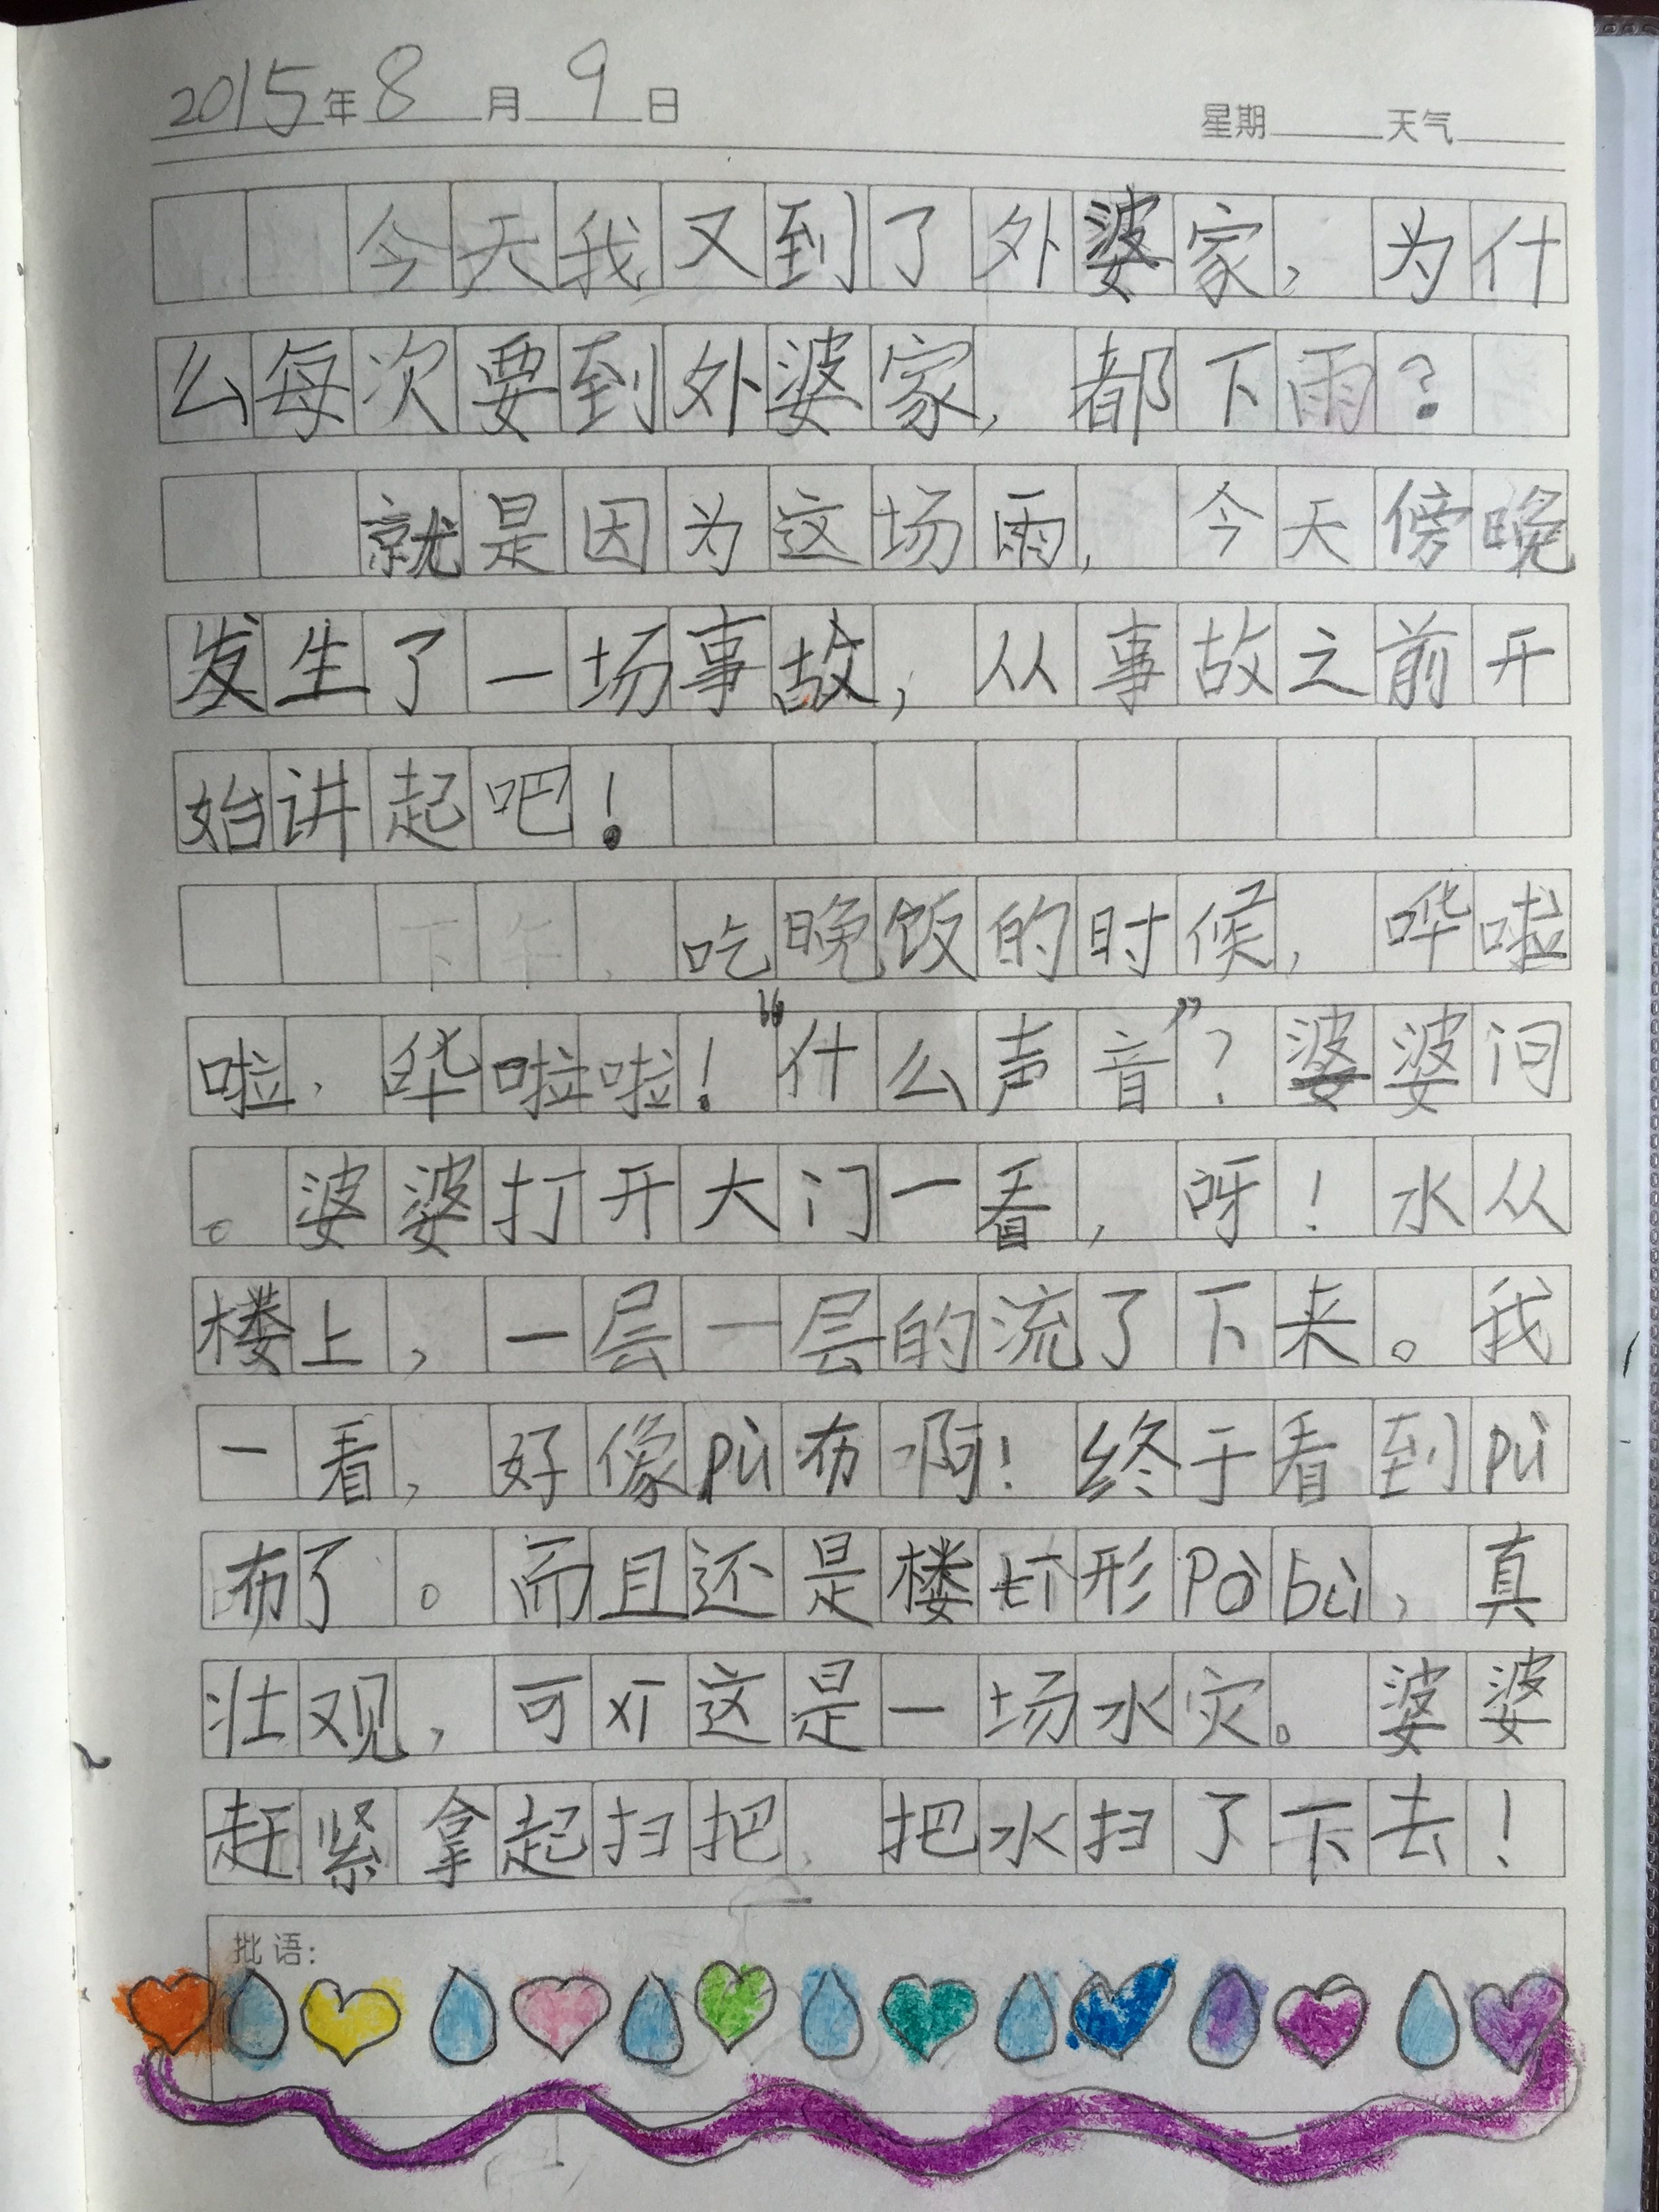 2015年8月9日 星期 天气
今天我又到了外婆家，为什
么每次要到外婆家，都下雨？
就是因为这场雨，今天傍晚
发生了一场事故，从事故之前开
始讲起吧！
下午，吃晚饭的时候，哗啦
啦，哗啦啦！“什么声音”？婆婆问
。婆婆打开大门一看，呀！水从
楼上，一层一层的流了下来。我
一看，好像pù布啊！终于看到pù
布了。而且还是楼形pòbù，真
壮观，可这是一场水灾。婆婆
赶紧拿起扫把，把水扫了下去！
批语：